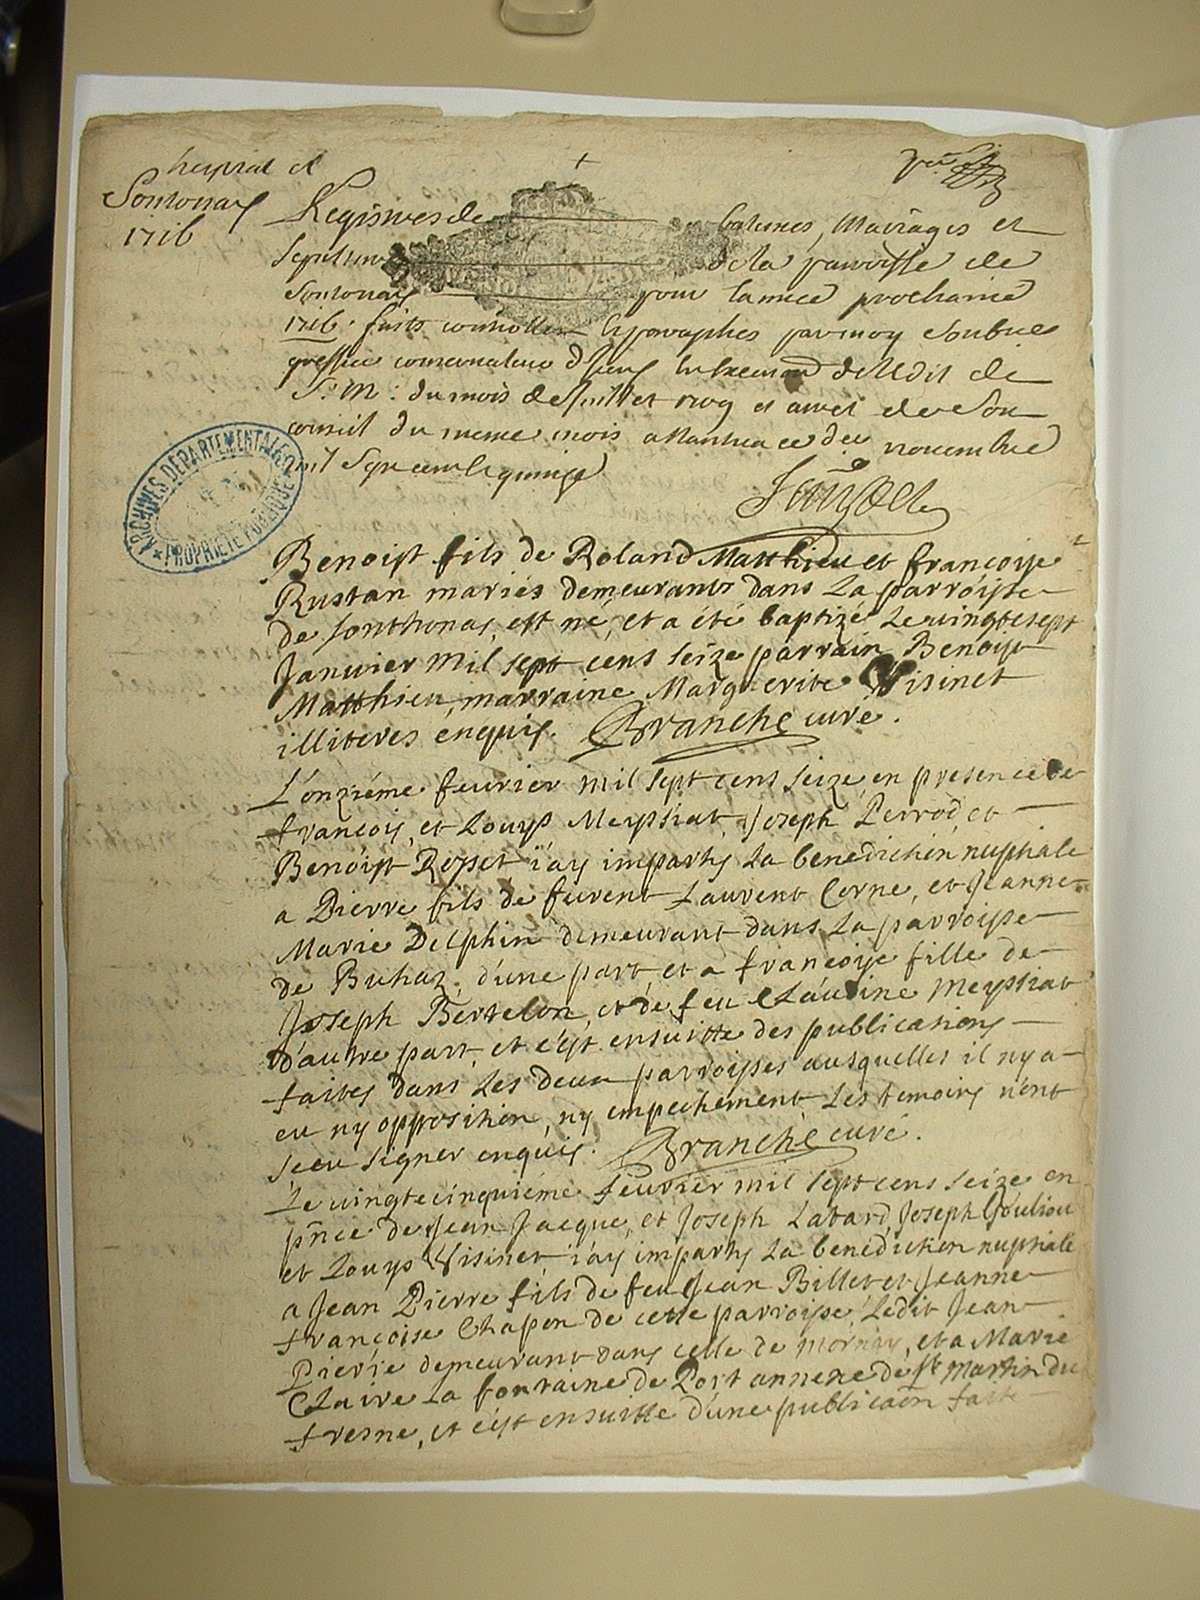 Sontonax
1716
Registres de batemes, Mariages et
de la parroisse de
Sontonax pour lannee prochaine
1716
du mois de et arret de Son
conseil du meme mois novembre
ARCHIVES DEPARTEMENTALES
PROPRIÉTÉ PUBLIQUE
Benoist fils de Roland Matthieu et françoise
Rustan mariés demeurants dans la parroisse
de sonthonas, est né, et a été baptizé le vingtesept
Janvier mil sept cens seize parrain Benoist
Matthieu, marraine Marguerite Visinet
illiterés enquis. Branche curé.
L'onziéme fevrier mil sept cens seize, en presence de
françois, et Louys Meyssiat, Joseph Perrod, et
Benoist Rosset i'ay imparty la benediction nuptiale
a Pierre fils de Laurent Cerne, et Jeanne
Marie Delphin demeurant dans la parroisse
de Buhaz, d'une part, et a françoise fille de
Joseph Bertelon, et de feu Claudine Meyssiat
d'autre part, et c'est ensuitte des publications
faites dans les deux parroisses ausquelles il ny a
eu ny opposition, ny empechement, les temoins n'ont
sceu signer enquis. Branche curé.
Le vingtecinquiéme fevrier mil sept cens seize en
pnce de Jean Jacque, et Joseph Labard, Joseph Gouliou
et Louys Visinet, i'ay imparty la benediction nuptiale
a Jean Pierre fils de feu Jean Billet et Jeanne
françoise Chapon de cette parroisse, ledit Jean
Pierre demeurant dans celle de mornay, et a Marie
Claire la fontaine de Port annexe de St Martin du
fresne, et c'est ensuitte d'une publicaon faite